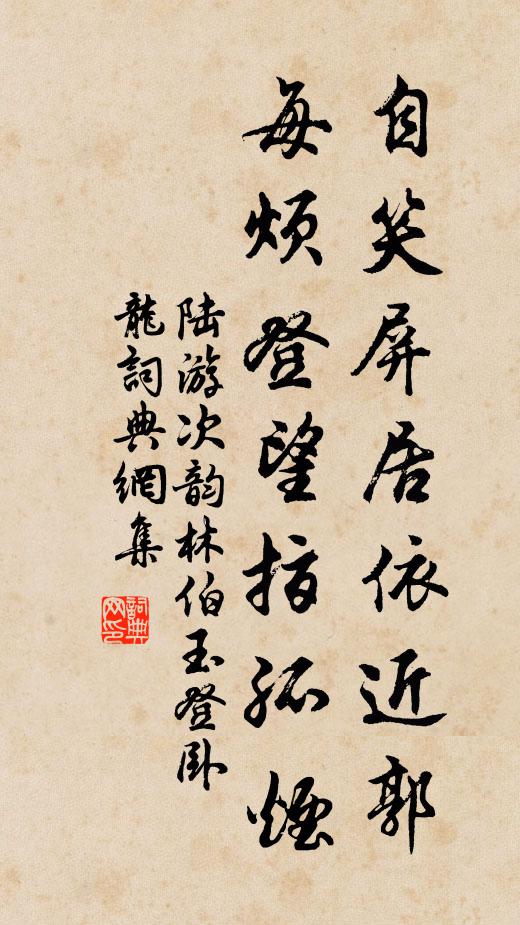 自笑屏居依近郭
每烦登望指孤烟
陆游次韵林伯玉登卧
龍詞典網集
詞典
网印